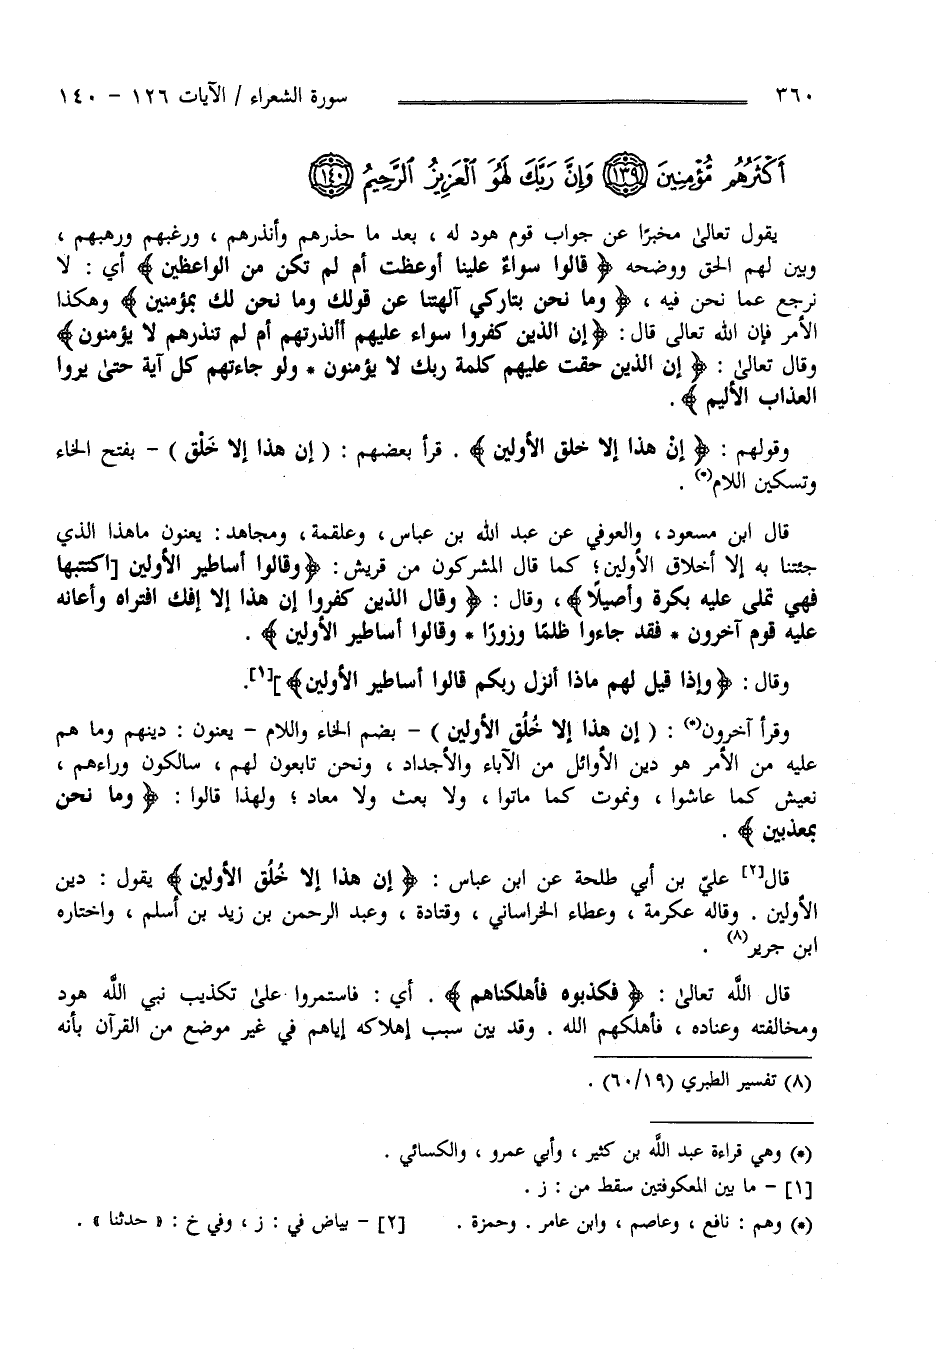 ٣٦٠ سورة الشعراء / الآيات ١٢٦ – ١٤٠
أَكْثَرُهُم مُّؤْمِنِينَ ١٣٩ وَإِنَّ رَبَّكَ لَهُوَ ٱلْعَزِيزُ ٱلرَّحِيمُ ١٤٠
يقول تعالىٰ مخبرًا عن جواب قوم هود له ، بعد ما حذرهم وأنذرهم ، ورغبهم ورهبهم ،
وبين لهم الحق ووضحه ﴿ قالوا سواءٌ علينا أوعظت أم لم تكن من الواعظين ﴾ أي : لا
نرجع عما نحن فيه ، ﴿ وما نحن بتاركي آلهتنا عن قولك وما نحن لك بمؤمنين ﴾ وهكذا
الأمر فإن الله تعالى قال : ﴿إن الذين كفروا سواء عليهم أأنذرتهم أم لم تنذرهم لا يؤمنون﴾
وقال تعالىٰ : ﴿ إن الذين حقت عليهم كلمة ربك لا يؤمنون * ولو جاءتهم كل آية حتىٰ يروا
العذاب الأليم ﴾ .
وقولهم : ﴿ إنْ هذا إلا خلق الأولين ﴾ . قرأ بعضهم : ( إن هذا إلا خَلْق ) – بفتح الخاء
وتسكين اللام(*) .
قال ابن مسعود ، والعوفي عن عبد الله بن عباس ، وعلقمة ، ومجاهد : يعنون ماهذا الذي
جئتنا به إلا أخلاق الأولين؛ كما قال المشركون من قريش : ﴿وقالوا أساطير الأولين [اكتتبها
فهي تملى عليه بكرة وأصيلًا﴾ ، وقال : ﴿ وقال الذين كفروا إن هذا إلا إفك افتراه وأعانه
عليه قوم آخرون * فقد جاءوا ظلمًا وزورًا * وقالوا أساطير الأولين ﴾ .
وقال : ﴿ وإذا قيل لهم ماذا أنزل ربكم قالوا أساطير الأولين﴾ ][١].
وقرأ آخرون(*) : ( إن هذا إلا خُلُق الأولين ) – بضم الخاء واللام – يعنون : دينهم وما هم
عليه من الأمر هو دين الأوائل من الآباء والأجداد ، ونحن تابعون لهم ، سالكون وراءهم ،
نعيش كما عاشوا ، ونموت كما ماتوا ، ولا بعث ولا معاد ؛ ولهذا قالوا : ﴿ وما نحن
بمعذبين ﴾ .
قال[٢] عليّ بن أبي طلحة عن ابن عباس : ﴿ إن هذا إلا خُلُق الأولين ﴾ يقول : دين
الأولين . وقاله عكرمة ، وعطاء الخراساني ، وقتادة ، وعبد الرحمن بن زيد بن أسلم ، واختاره
ابن جرير(٨) .
قال اللَّه تعالىٰ : ﴿ فكذبوه فأهلكناهم ﴾ . أي : فاستمروا علىٰ تكذيب نبي اللَّه هود
ومخالفته وعناده ، فأهلكهم الله . وقد بين سبب إهلاكه إياهم في غير موضع من القرآن بأنه
(٨) تفسير الطبري (٦٠/١٩) .
(*) وهي قراءة عبد اللَّه بن كثير ، وأبي عمرو ، والكسائي .
[١] – ما بين المعكوفتين سقط من : ز .
(*) وهم : نافع ، وعاصم ، وابن عامر . وحمزة . [٢] – بياض في : ز ، وفي خ : « حدثنا » .